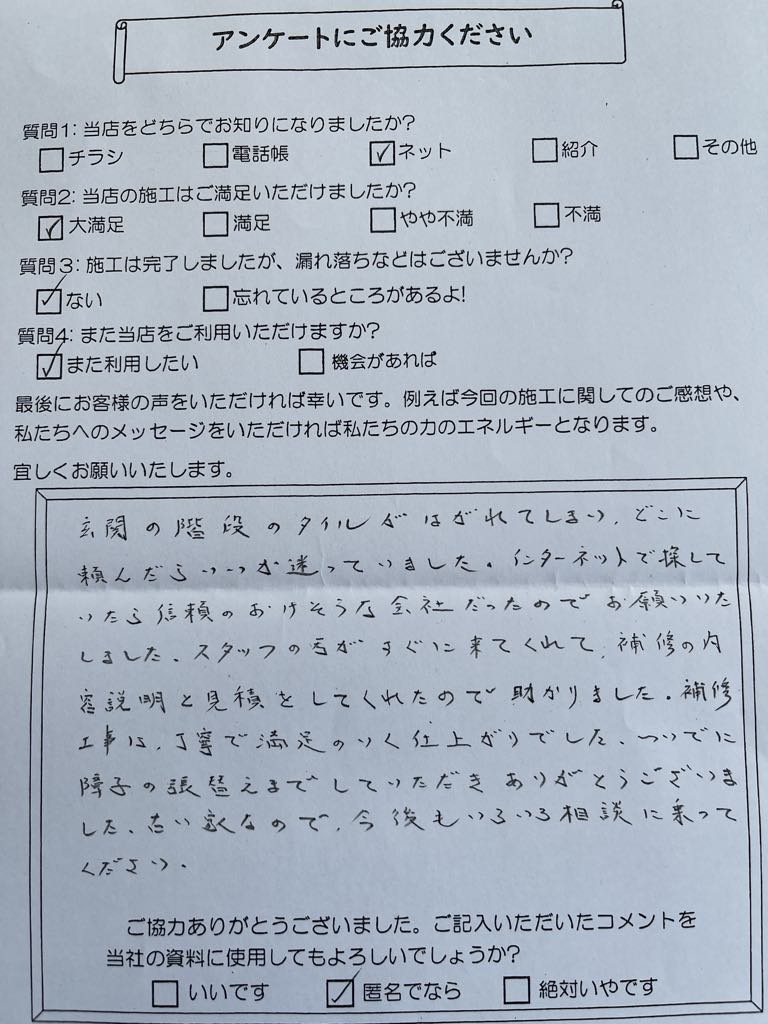 アンケートにご協力ください
質問1: 当店をどちらでお知りになりましたか?
チラシ 電話帳 ネット 紹介 その他
質問2: 当店の施工はご満足いただけましたか?
大満足 満足 やや不満 不満
質問3: 施工は完了しましたが、漏れ落ちなどはございませんか?
ない 忘れているところがあるよ!
質問4: また当店をご利用いただけますか?
また利用したい 機会があれば
最後にお客様の声をいただければ幸いです。例えば今回の施工に関してのご感想や、
私たちへのメッセージをいただければ私たちの力のエネルギーとなります。
宜しくお願いいたします。
玄関の階段のタイルがはがれてしまい、どこに
頼んだらいいか迷っていました。インターネットで探して
いたら信頼のおけそうな会社だったのでお願いいた
しました。スタッフの方がすぐに来てくれて、補修の内
容説明と見積をしてくれたので助かりました。補修
工事は、丁寧で満足のいく仕上がりでした。ついでに
障子の張替えまでしていただきありがとうございま
した。古い家なので、今後もいろいろ相談に乗って
ください。
ご協力ありがとうございました。ご記入いただいたコメントを
当社の資料に使用してもよろしいでしょうか?
いいです 匿名でなら 絶対いやです